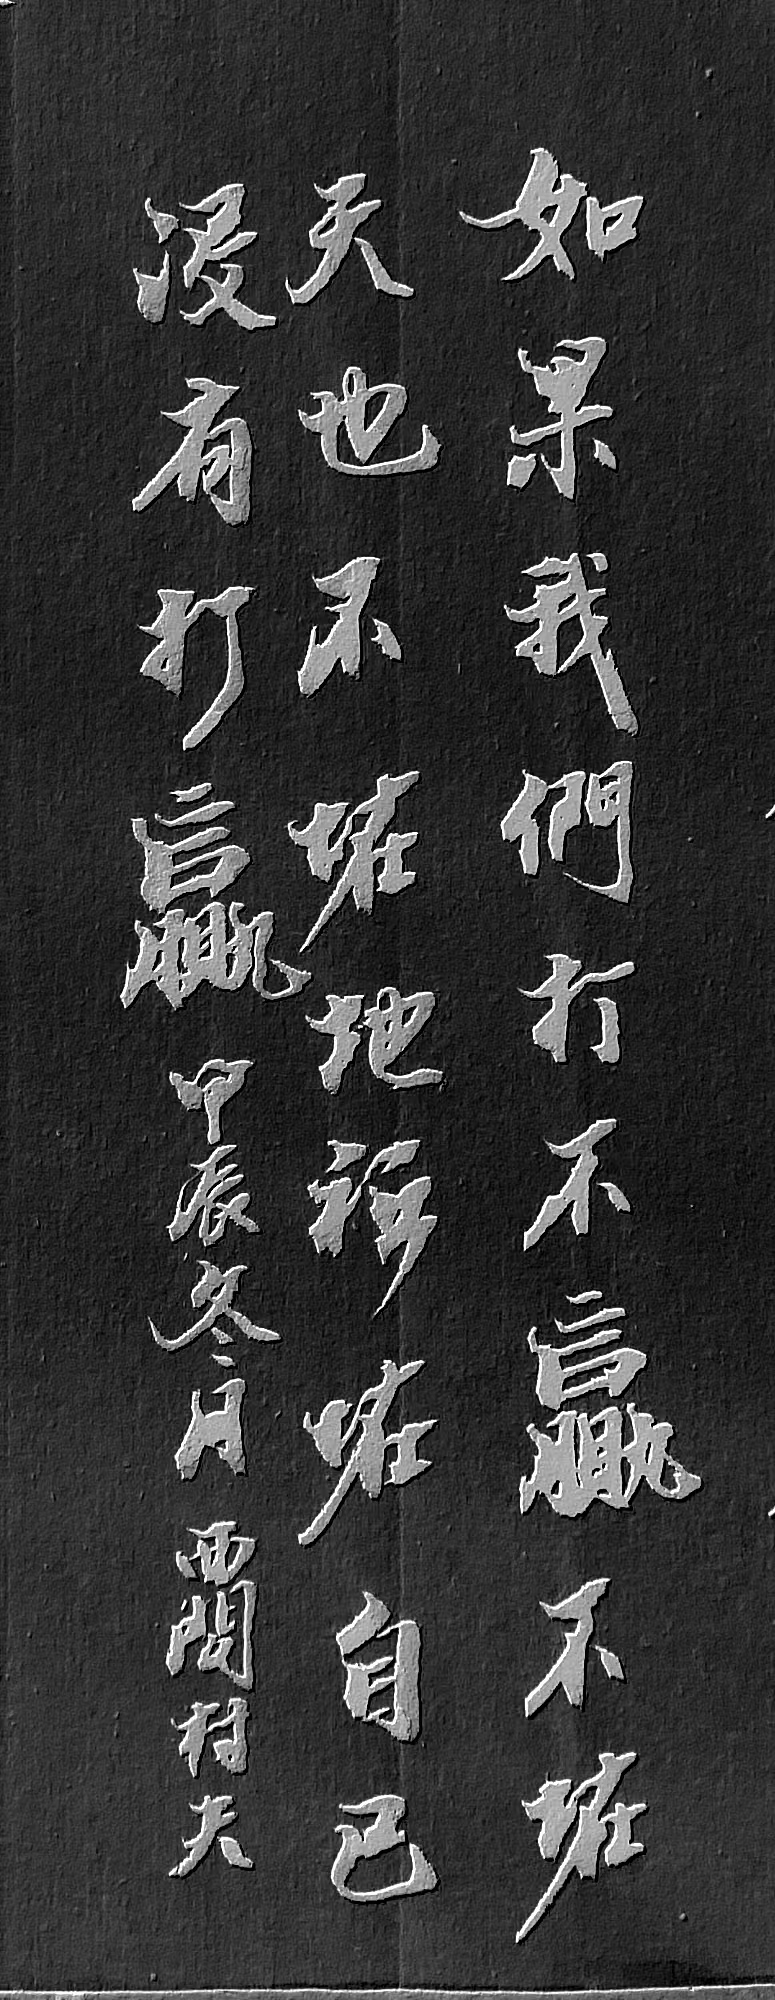 如果我們打不贏不恠
天也不恠地恠自己
沒有打贏 甲辰冬月 西村夫